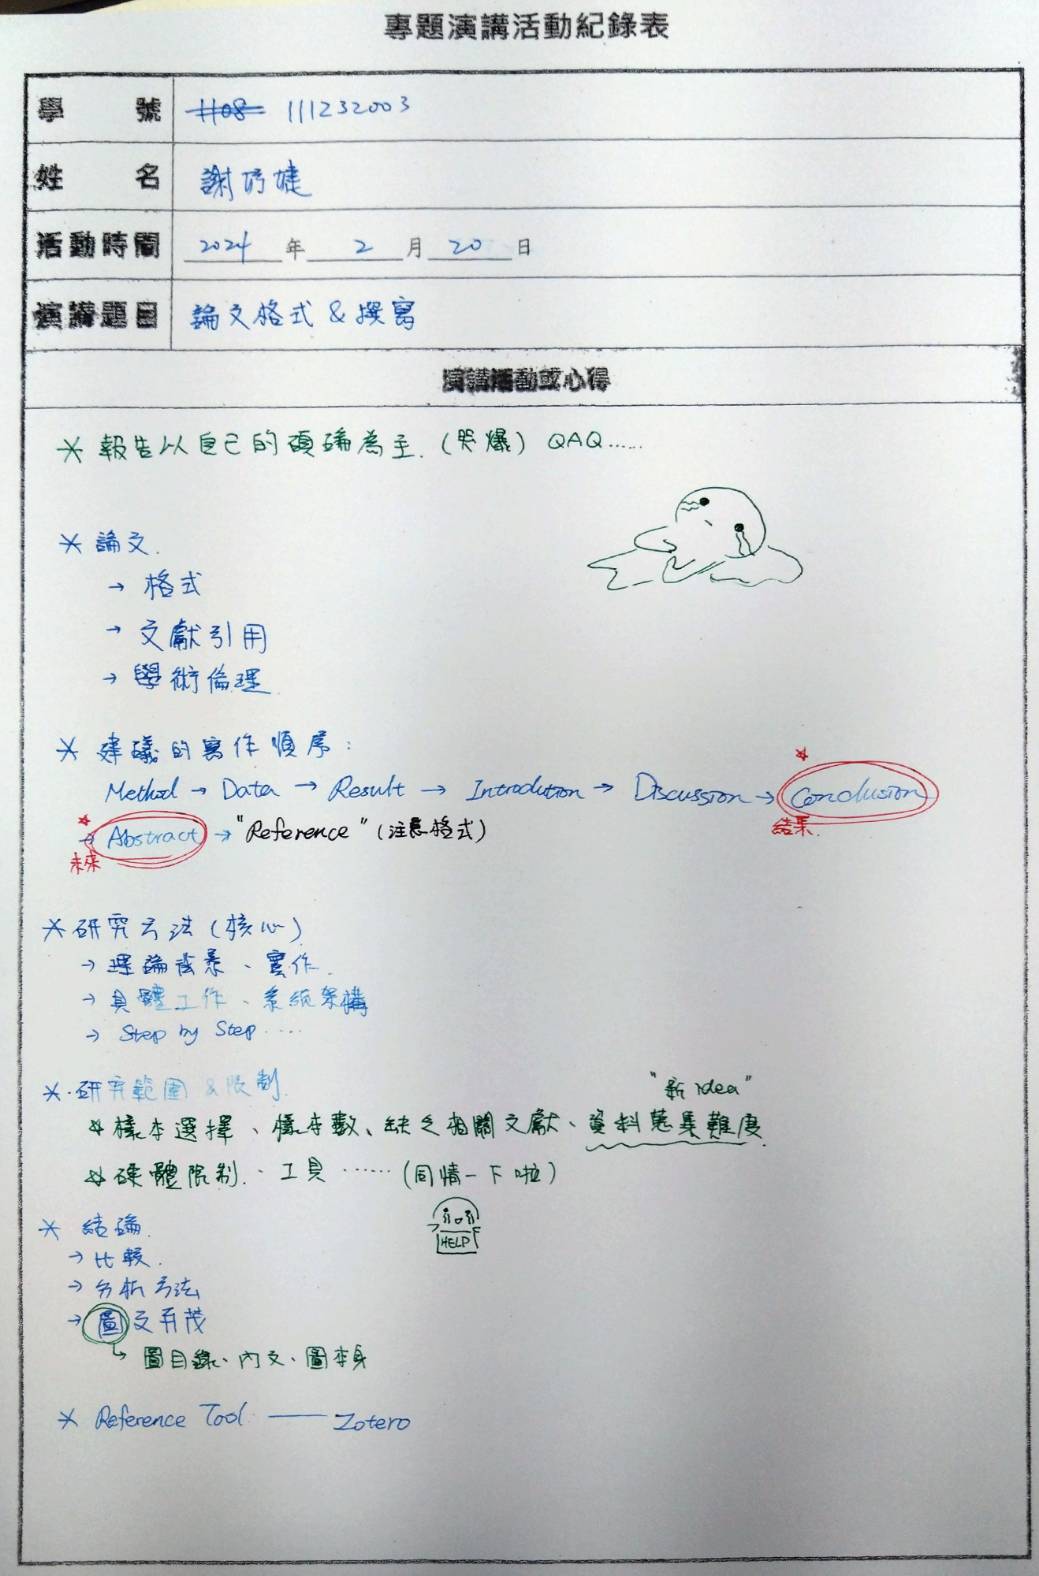 專題演講活動紀錄表
學 號 1108 111232003
姓 名 謝巧婕
活動時間 2024 年 2 月 20 日
演講題目 論文格式 & 撰寫
演講活動或心得
* 報告以自己的碩論為主. (哭爆) QAQ……
* 論文.
→ 格式
→ 文獻引用
→ 學術倫理.
* 建議的寫作順序:
Method → Data → Result → Introdution → Discussion → Conclusion
結果.
→ Abstract → "Reference" (注意格式)
未來
* 研究方法 (核心)
→ 理論背景、實作.
→ 具體工作、系統架構
→ Step by Step ....
* 研究範圍 & 限制.
"新 idea"
☆ 樣本選擇、樣本數、缺乏相關文獻、資料蒐集難度
☆ 硬體限制、工具 …… (同情一下啦)
HELP
* 結論.
→ 比較.
→ 分析方法
→ 圖文並茂
↳ 圖目錄、內文、圖本身
* Reference Tool —— Zotero